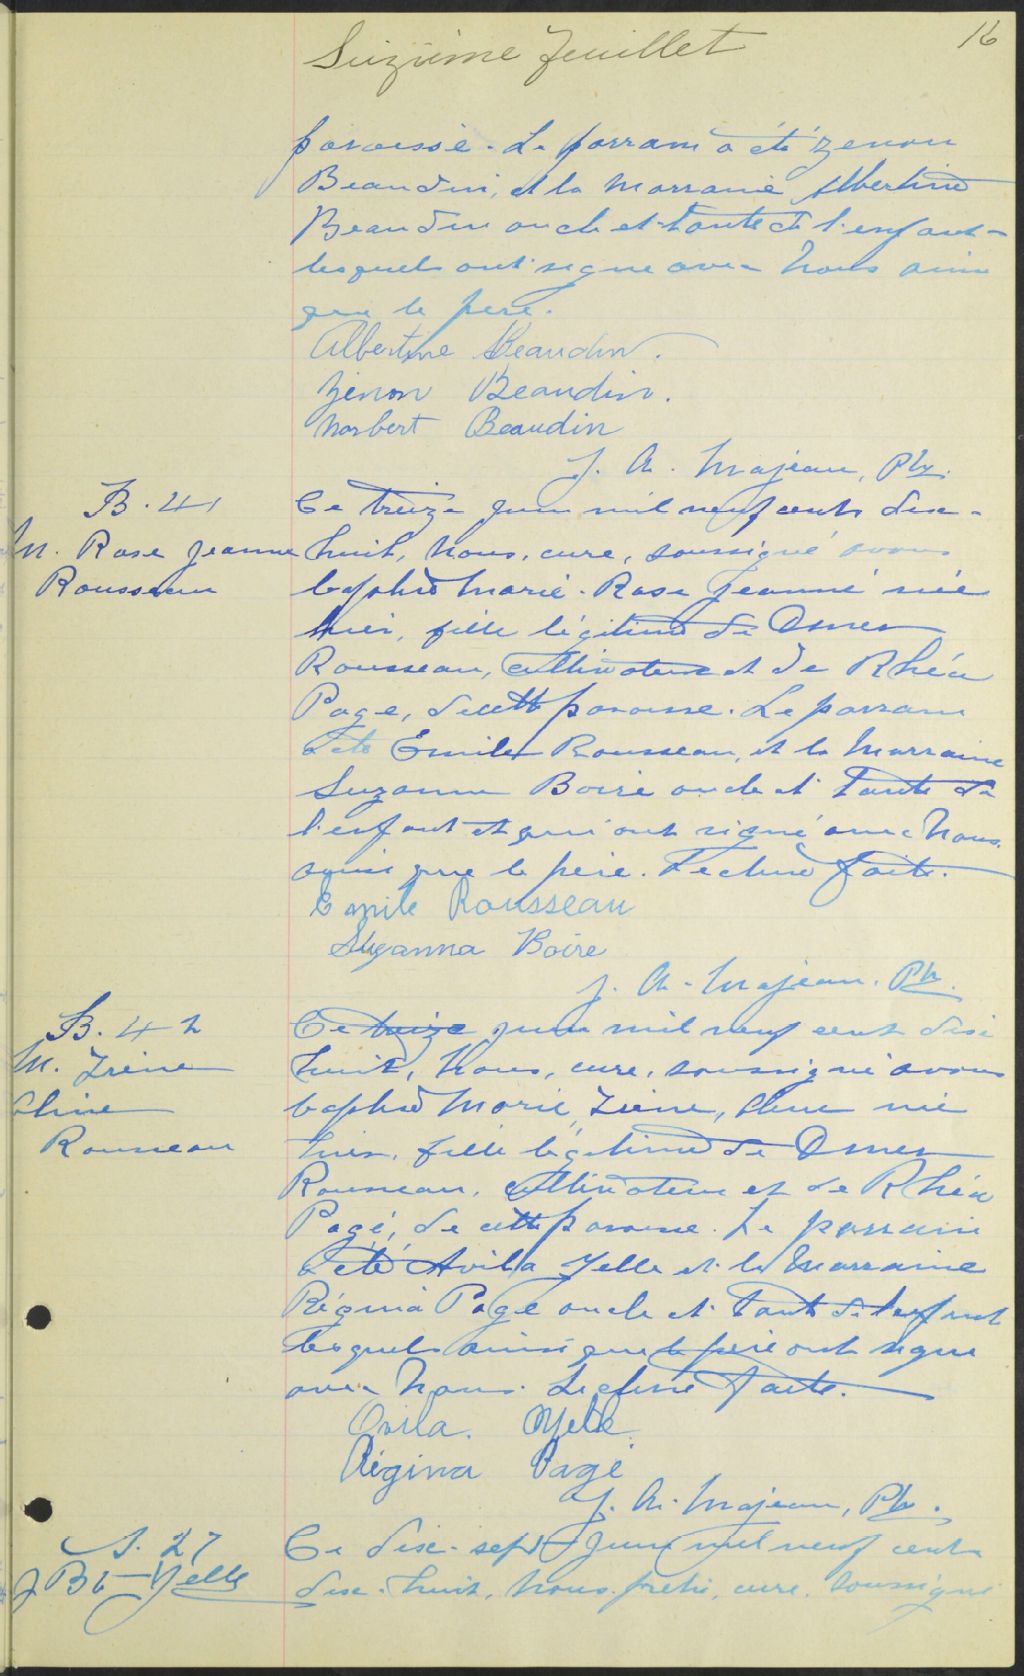 Seizième feuillet
16
paroisse. Le parrain a été Zenon
Beaudin, et la marraine Albertine
Beaudin oncle et tante de l'enfant
lesquels ont signé avec nous ainsi
que le père.
Albertine Beaudin.
Zénon Beaudin.
Norbert Beaudin
J. A. Majeau, Ptr.
B. 41
M. Rose Jeanne
Rousseau
Ce treize juin mil neuf cents dix-
huit, nous, curé, soussigné avons
baptisé Marie-Rose Jeanne née
hier, fille légitime de Omer
Rousseau, cultivateur et de Rhéa
Page, de cette paroisse. Le parrain
a été Emile Rousseau, et la marraine
Suzanna Boire oncle et tante de
l'enfant et qui ont signé avec nous
ainsi que le père. Lecture faite.
Emile Rousseau
Suzanna Boire
J. A. Majeau. Ptr.
B. 42
M. Irène
Aline
Rousseau
Ce treize juin mil neuf cent dix
huit, nous, curé, soussigné avons
baptisé Marie, Irène, Aline née
hier, fille légitime de Omer
Rousseau, cultivateur et de Rhéa
Pagé, de cette paroisse. Le parrain
a été Avila Yelle et la marraine
Régina Page oncle et tante de l'enfant
lesquels ainsi que le père ont signé
avec nous. Lecture faite.
Ovila. Yelle
Régina Pagé
J. A. Majeau, Ptr.
S. 27
J Bte Yelle
Ce dix-sept Juin mil neuf cent
dix-huit, nous prêtre, curé, soussigné